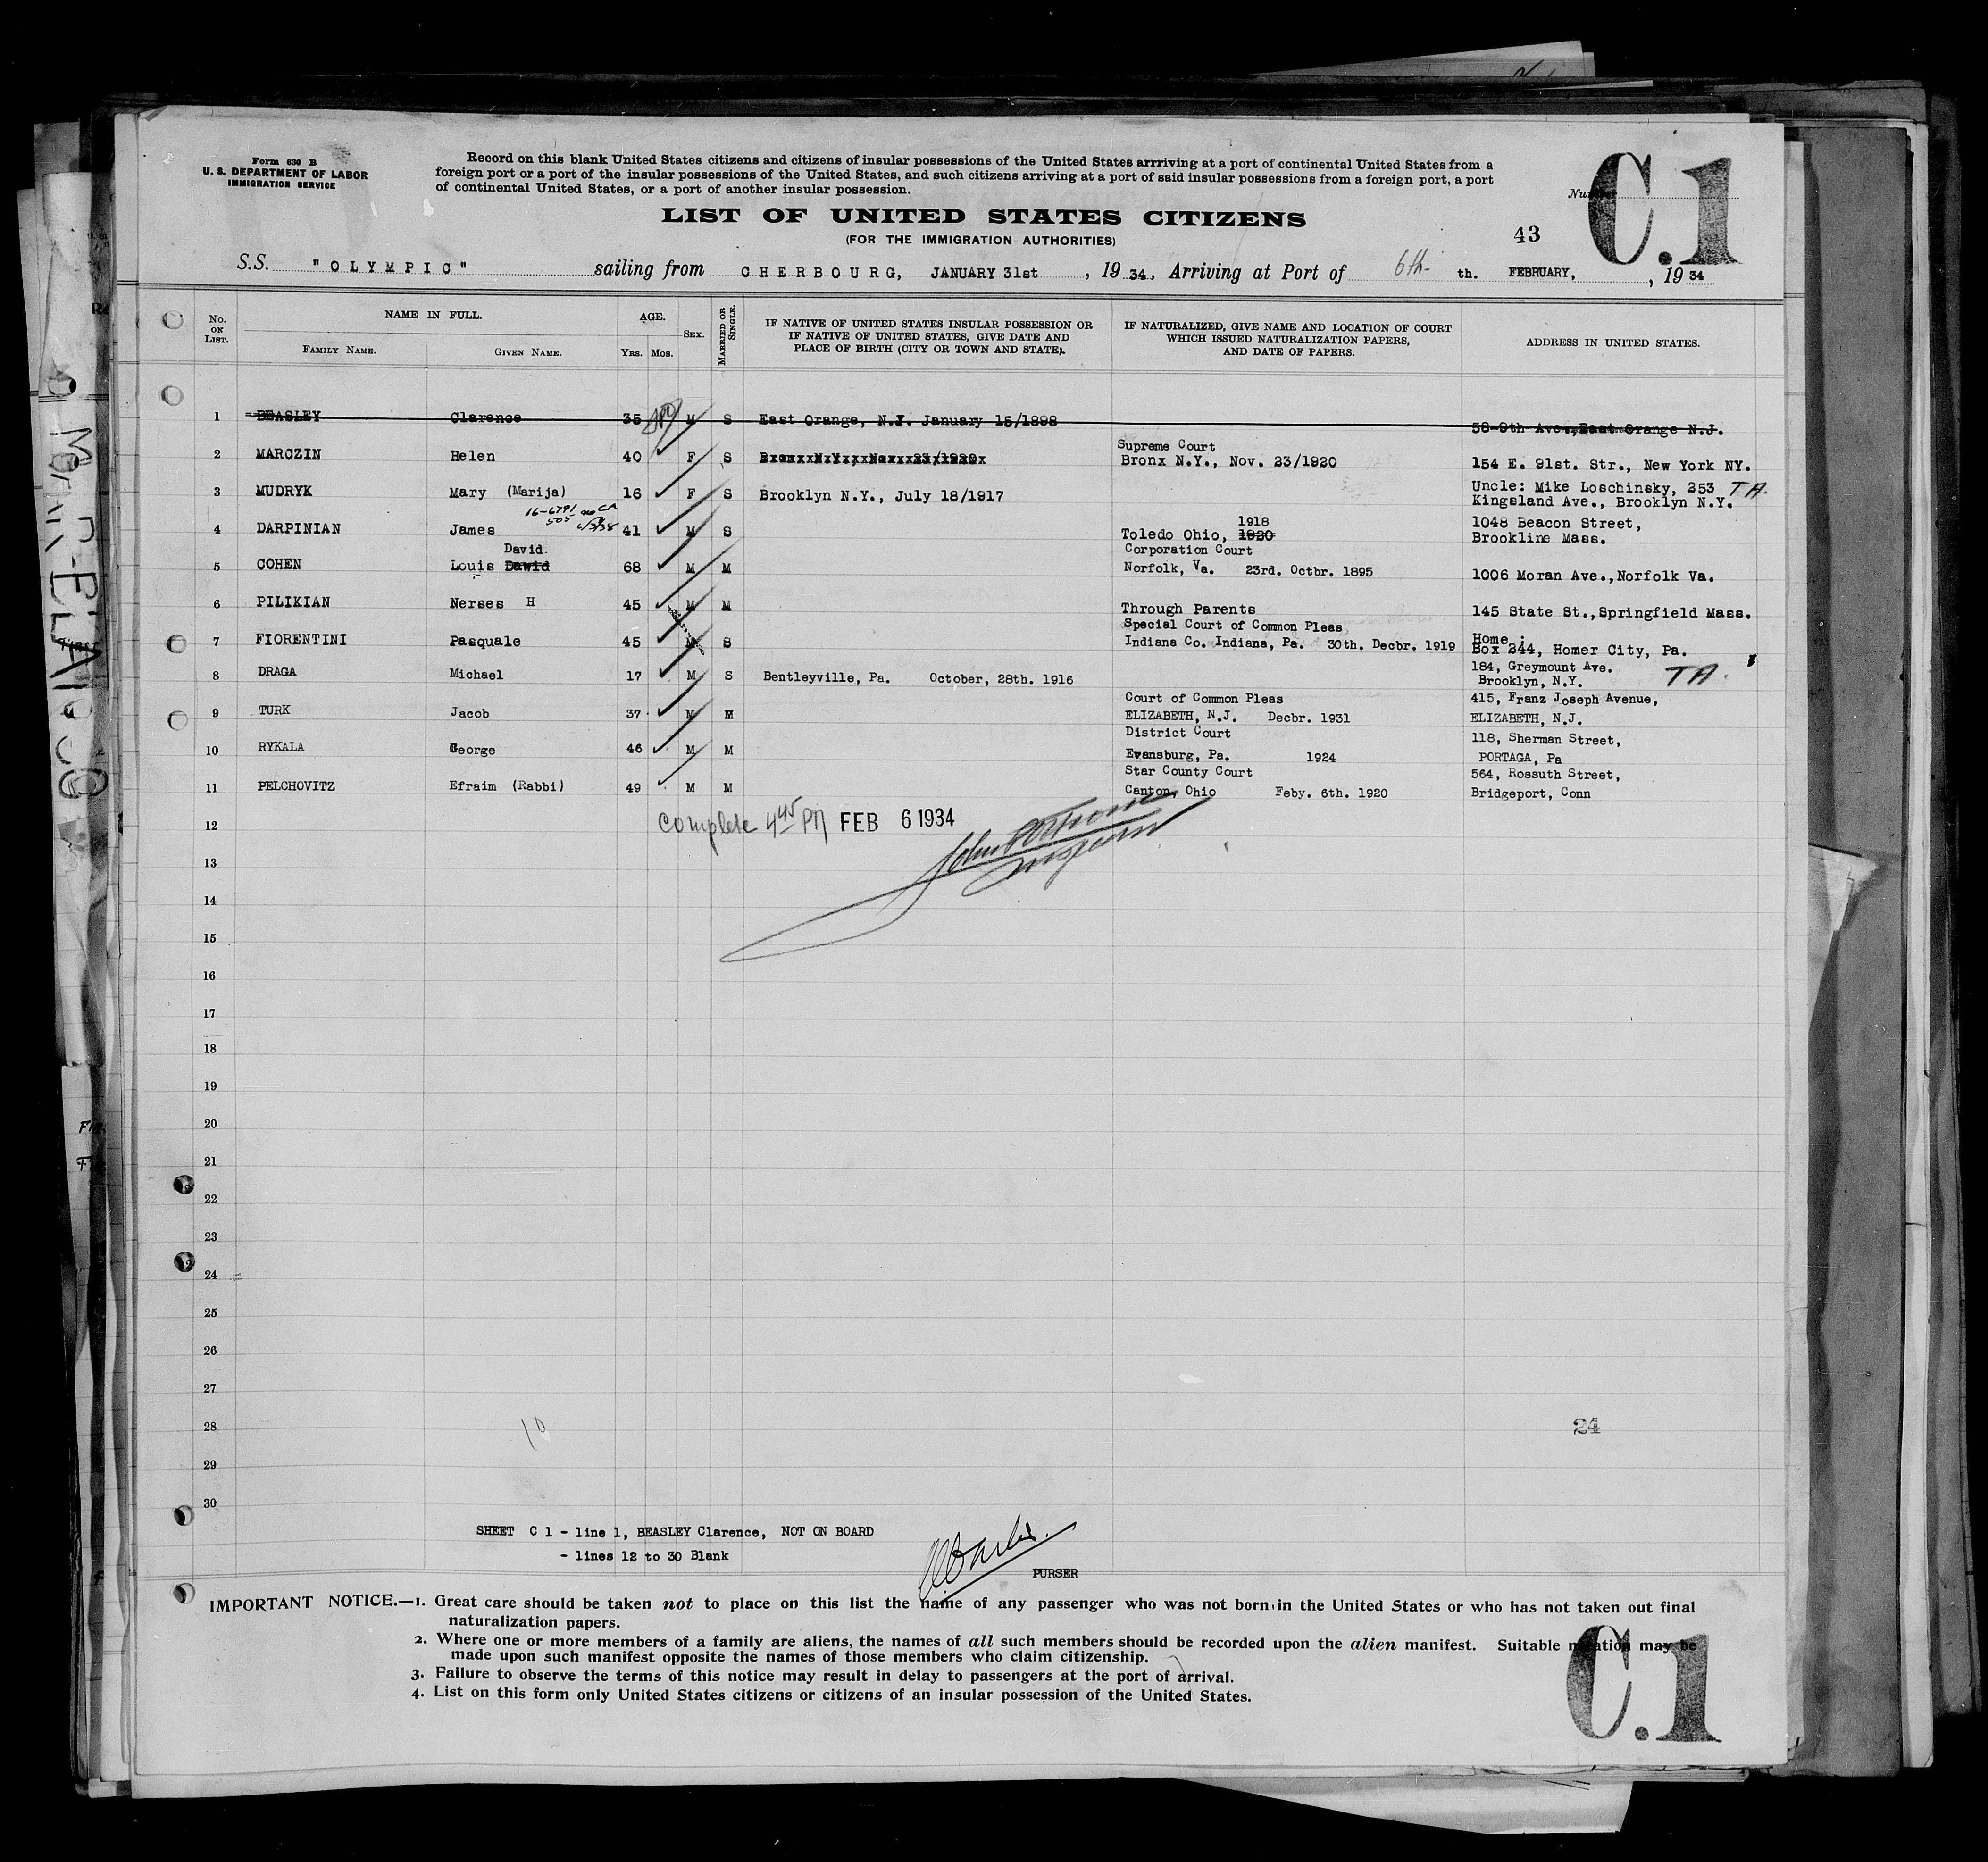 Form 630 B
U. S. DEPARTMENT OF LABOR
IMMIGRATION SERVICE
Record on this blank United States citizens and citizens of insular possessions of the United States arrriving at a port of continental United States from a
foreign port or a port of the insular possessions of the United States, and such citizens arriving at a port of said insular possessions from a foreign port, a port
of continental United States, or a port of another insular possession.
C.1
LIST OF UNITED STATES CITIZENS
(FOR THE IMMIGRATION AUTHORITIES)
43
S.S. "OLYMPIC" sailing from CHERBOURG, JANUARY 31st , 19 34, Arriving at Port of 6th th. FEBRUARY, , 19 34
No. ON LIST. NAME IN FULL. FAMILY NAME. GIVEN NAME. AGE. Yrs. Mos. Sex. MARRIED OR SINGLE. IF NATIVE OF UNITED STATES INSULAR POSSESSION OR IF NATIVE OF UNITED STATES, GIVE DATE AND PLACE OF BIRTH (CITY OR TOWN AND STATE). IF NATURALIZED, GIVE NAME AND LOCATION OF COURT WHICH ISSUED NATURALIZATION PAPERS, AND DATE OF PAPERS. ADDRESS IN UNITED STATES.
1 BEASLEY Clarence 35 M S East Orange, N.J. January 15/1898 58-9th Ave., East Orange N.J.
Supreme Court
2 MARCZIN Helen 40 F S Bronx N.Y., Nov. 23/1920 Bronx N.Y., Nov. 23/1920 154 E. 91st. Str., New York NY.
3 MUDRYK Mary (Marija) 16 F S Brooklyn N.Y., July 18/1917 Uncle: Mike Loschinsky, 253 TA.
Kingsland Ave., Brooklyn N.Y.
16-6791
505
1918 1048 Beacon Street,
4 DARPINIAN James 41 M S Toledo Ohio, 1920 Brookline Mass.
David. Corporation Court
5 COHEN Louis Dawid 68 M M Norfolk, Va. 23rd. Octbr. 1895 1006 Moran Ave.,Norfolk Va.
6 PILIKIAN Nerses H 45 M M Through Parents 145 State St.,Springfield Mass.
Special Court of Common Pleas Home :
7 FIORENTINI Pasquale 45 M S Indiana Co. Indiana, Pa. 30th. Decbr. 1919 Box 244, Homer City, Pa.
184, Greymount Ave.
8 DRAGA Michael 17 M S Bentleyville, Pa. October, 28th. 1916 Brooklyn, N.Y. TA.
Court of Common Pleas 415, Franz Joseph Avenue,
9 TURK Jacob 37 M M ELIZABETH, N.J. Decbr. 1931 ELIZABETH, N.J.
District Court 118, Sherman Street,
10 RYKALA George 46 M M Evansburg, Pa. 1924 PORTAGA, Pa
Star County Court 564, Rossuth Street,
11 PELCHOVITZ Efraim (Rabbi) 49 M M Canton, Ohio Feby. 6th. 1920 Bridgeport, Conn
12 complete 4 45 PM FEB 6 1934
13
14
15
16
17
18
19
20
21
22
23
24
25
26
27
28 10 24
29
30
SHEET C 1 - line 1, BEASLEY Clarence, NOT ON BOARD
- lines 12 to 30 Blank
PURSER
IMPORTANT NOTICE.—1. Great care should be taken not to place on this list the name of any passenger who was not born in the United States or who has not taken out final
naturalization papers.
2. Where one or more members of a family are aliens, the names of all such members should be recorded upon the alien manifest. Suitable notation may be
made upon such manifest opposite the names of those members who claim citizenship.
3. Failure to observe the terms of this notice may result in delay to passengers at the port of arrival.
4. List on this form only United States citizens or citizens of an insular possession of the United States.
C.1